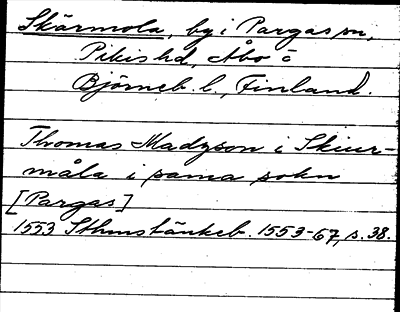 Skärmola, by i Pargas sn,
Pikis hd, Åbo o
Björneb. l., Finland.
Thomas Madzson i Skiur-
måla i sama sokn
[Pargas]
1553 Sthmstänkeb. 1553-67, s. 38.